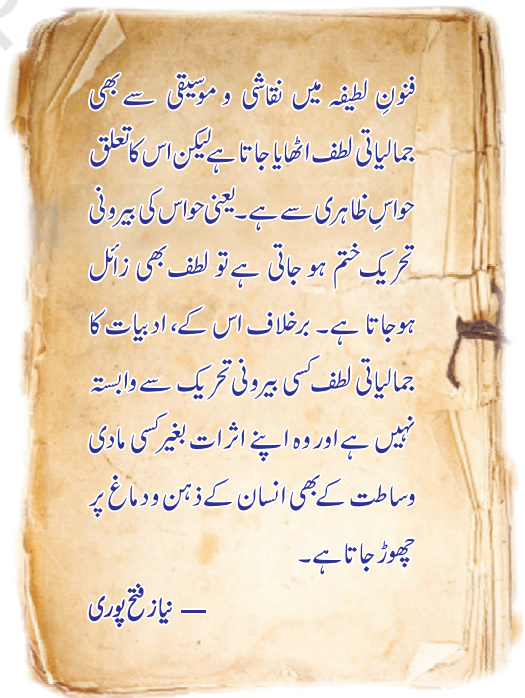 فنونِ لطیفہ میں نقاشی و موسیقی سے بھی
جمالیاتی لطف اٹھایا جاتا ہے لیکن اس کا تعلق
حواسِ ظاہری سے ہے۔ یعنی حواس کی بیرونی
تحریک ختم ہو جاتی ہے تو لطف بھی زائل
ہوجاتا ہے۔ برخلاف اس کے، ادبیات کا
جمالیاتی لطف کسی بیرونی تحریک سے وابستہ
نہیں ہے اور وہ اپنے اثرات بغیر کسی مادی
وساطت کے بھی انسان کے ذہن و دماغ پر
چھوڑ جاتا ہے۔
— نیاز فتح پوری